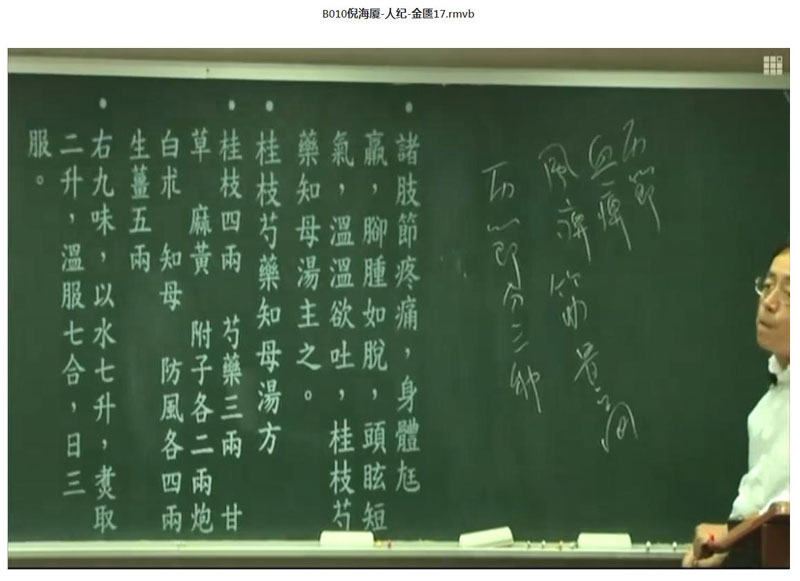 B010倪海厦-人纪-金匮17.rmvb
历節
血痺
風痺
历節分三种
• 諸肢節疼痛，身體尪
羸，腳腫如脫，頭眩短
氣，溫溫欲吐，桂枝芍
藥知母湯主之。
• 桂枝芍藥知母湯方
• 桂枝四兩 芍藥三兩 甘
草 麻黃 附子各二兩炮
白朮 知母 防風各四兩
生薑五兩
• 右九味，以水七升，煑取
二升，溫服七合，日三
服。